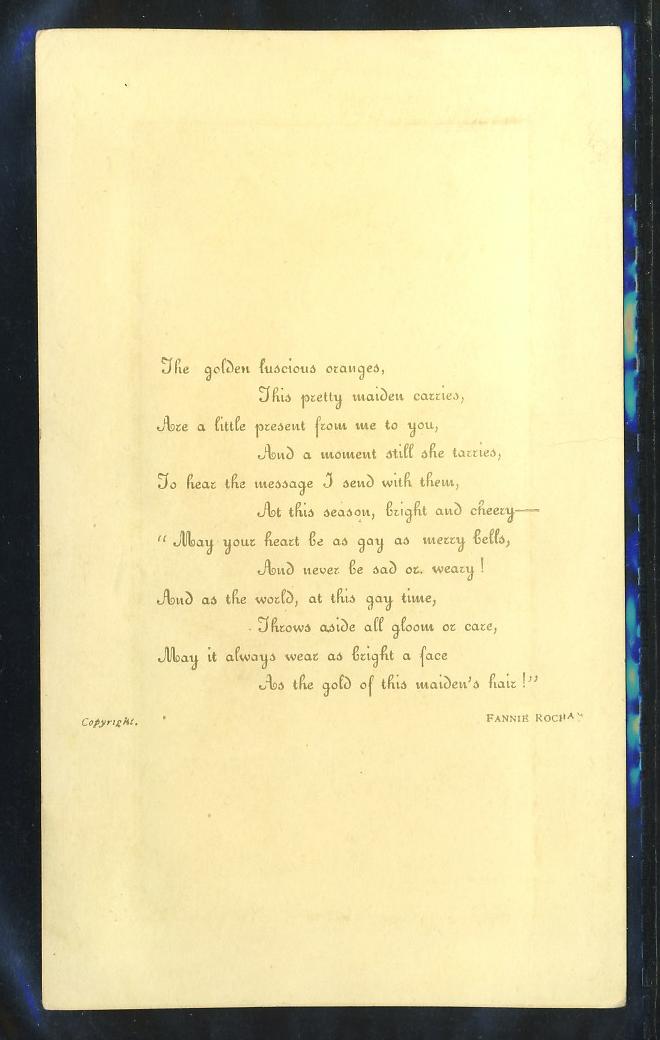 The golden luscious oranges,
This pretty maiden carries,
Are a little present from me to you,
And a moment still she tarries,
To hear the message I send with them,
At this season, bright and cheery—
“ May your heart be as gay as merry bells,
And never be sad or. weary !
And as the world, at this gay time,
Throws aside all gloom or care,
May it always wear as bright a face
As the gold of this maiden's hair !”
Copyright.
FANNIE